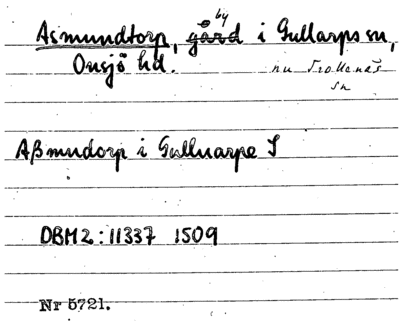 Asmundtorp, by gård i Gullarps sn,
Onsjö hd. nu Trollenäs
sn
Aßmudorp i Gulluarpe S
DBM2:11337 1509
Nr 5721.